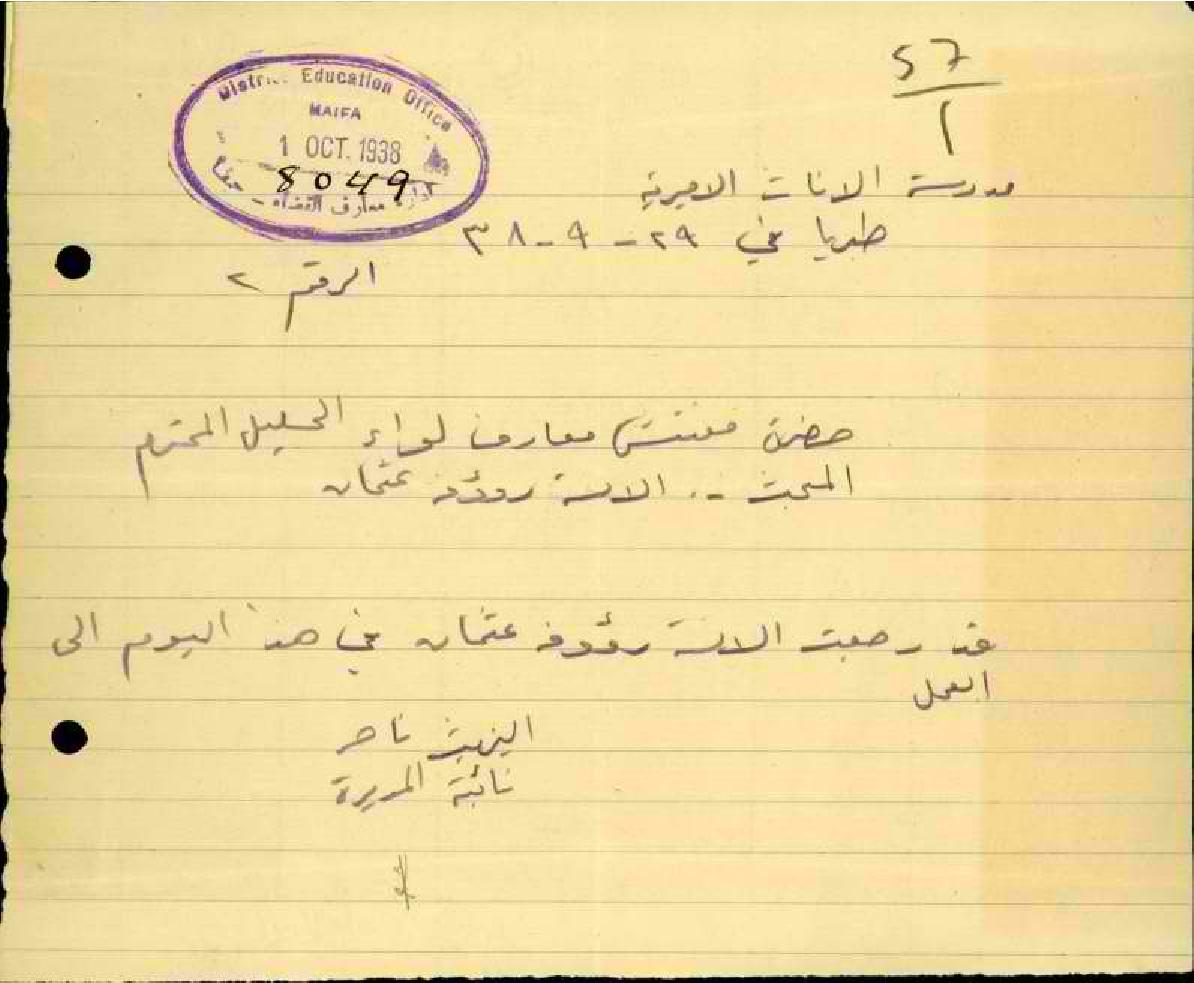 57
1
District Education Office
HAIFA
1 OCT. 1938
8049
ادارة معارف القضاء - حيفا
مدرسة الاناث الاميرية
طبريا في ٢٩ - ٩ - ٣٨
الرقم ٢
حضرة مفتش معارف لواء الجليل المحترم
المبحث .. الانسة رؤوفه عثمان
قد رجعت الانسة رؤوفه عثمان في هذا اليوم الى
العمل
اليزبيث ناصر
نائبة المديرة